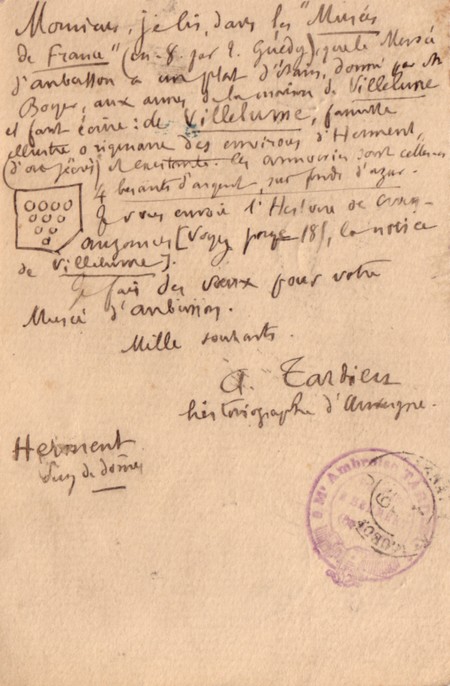 Monsieur, je lis, dans les "Musées
de France" (in-8. par T. Guédy), que le Musée
d'aubusson a un plat d'étain, donné par Mr
Boyer, aux armes de la maison de Villelume
et faut écrire: de Villelume, famille
illustre originaire des environs d'Herment,
et existante. les armoiries sont celles-ci
besants d'argent, sur fonds d'azur.
Je vous envoie l'Histoire de
[Voyez page 181, la notice
de Villelume].
Je fais des vœux pour votre
Musée d'aubusson.
Mille souhaits.
A. Tardieu
historiographe d'Auvergne.
Herment
Puy de dôme
Mr Ambroise TARD